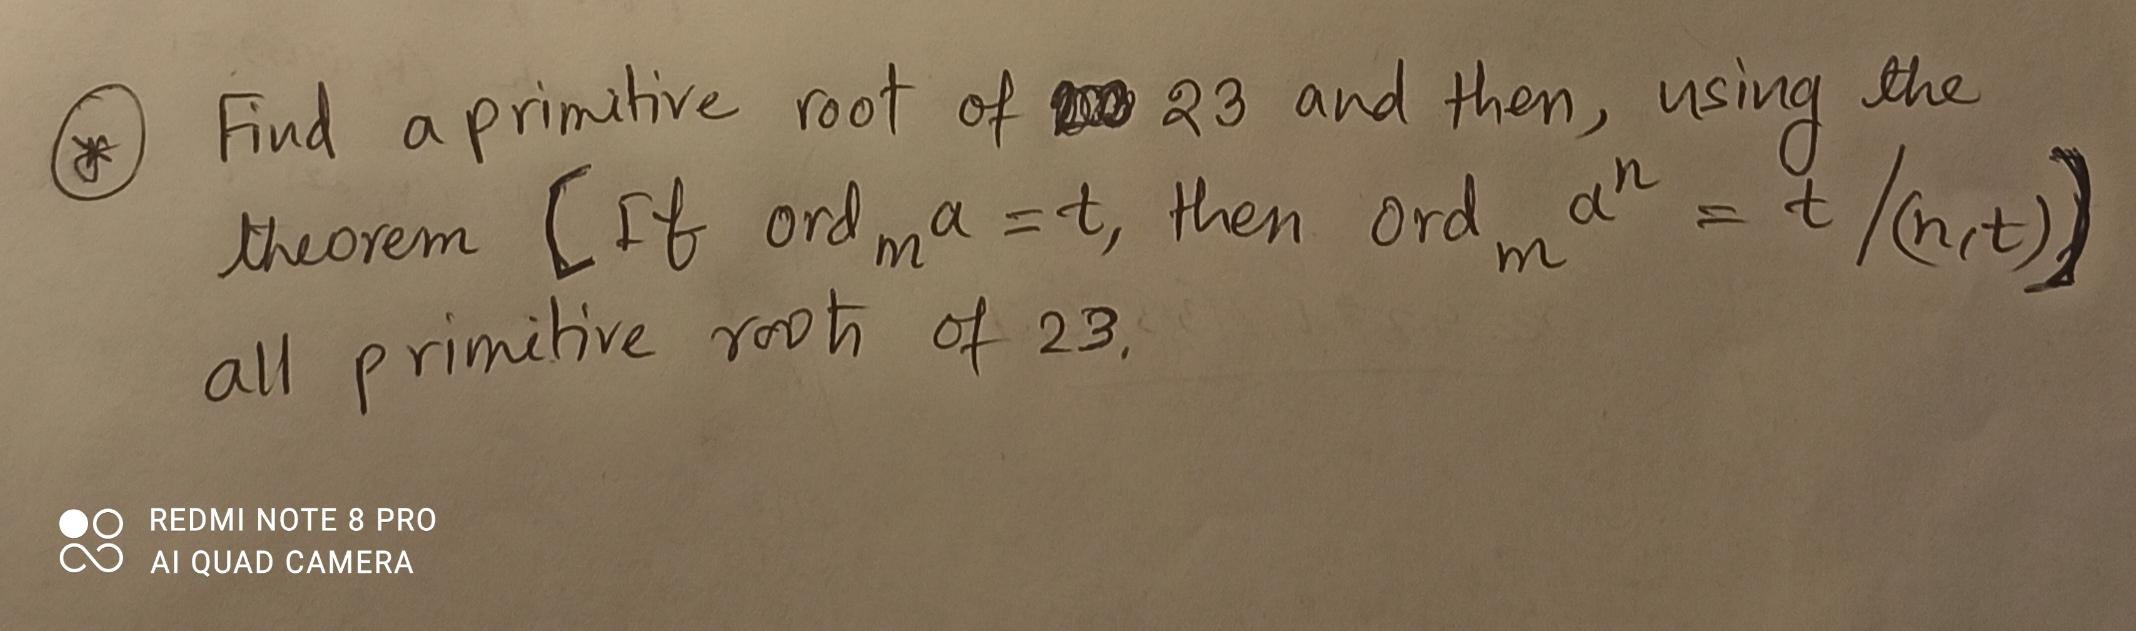 * Find a primitive root of 23 and then, using the
theorem [If ord_m a = t, then ord_m a^n = t/(n,t)]
all primitive roots of 23.
REDMI NOTE 8 PRO
AI QUAD CAMERA